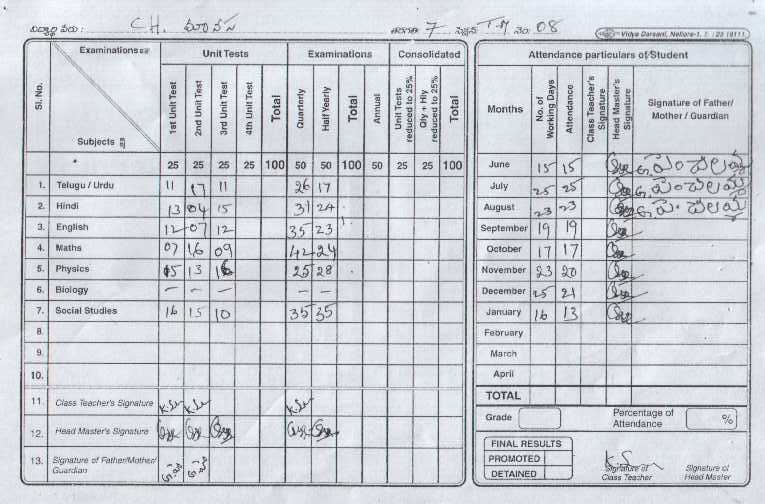 విద్యార్థి పేరు: CH. మానస తరగతి 7 సెక్షన్ T.M నెం 08 Vidya Darsani, Nellore-1.
Examinations Unit Tests Examinations Consolidated
Sl. No. 1st Unit Test 2nd Unit Test 3rd Unit Test 4th Unit Test Total Quarterly Half Yearly Total Annual Unit Tests reduced to 25% Qly + Hly reduced to 25% Total
Subjects
25 25 25 25 100 50 50 100 50 25 25 100
1. Telugu / Urdu 11 17 11 26 17
2. Hindi 13 04 15 31 24
3. English 12 07 12 35 23
4. Maths 07 16 09 42 24
5. Physics 15 13 16 25 28
6. Biology – – – – –
7. Social Studies 16 15 10 35 35
8.
9.
10.
11. Class Teacher's Signature
12. Head Master's Signature
13. Signature of Father/Mother/ Guardian
Attendance particulars of Student
Months No. of Working Days Attendance Class Teacher's Signature Head Master's Signature Signature of Father/ Mother / Guardian
June 15 15
July 25 25
August 23 23
September 19 19
October 17 17
November 23 20
December 25 21
January 16 13
February
March
April
TOTAL
Grade Percentage of Attendance %
FINAL RESULTS
PROMOTED
DETAINED
Signature of Class Teacher Signature of Head Master